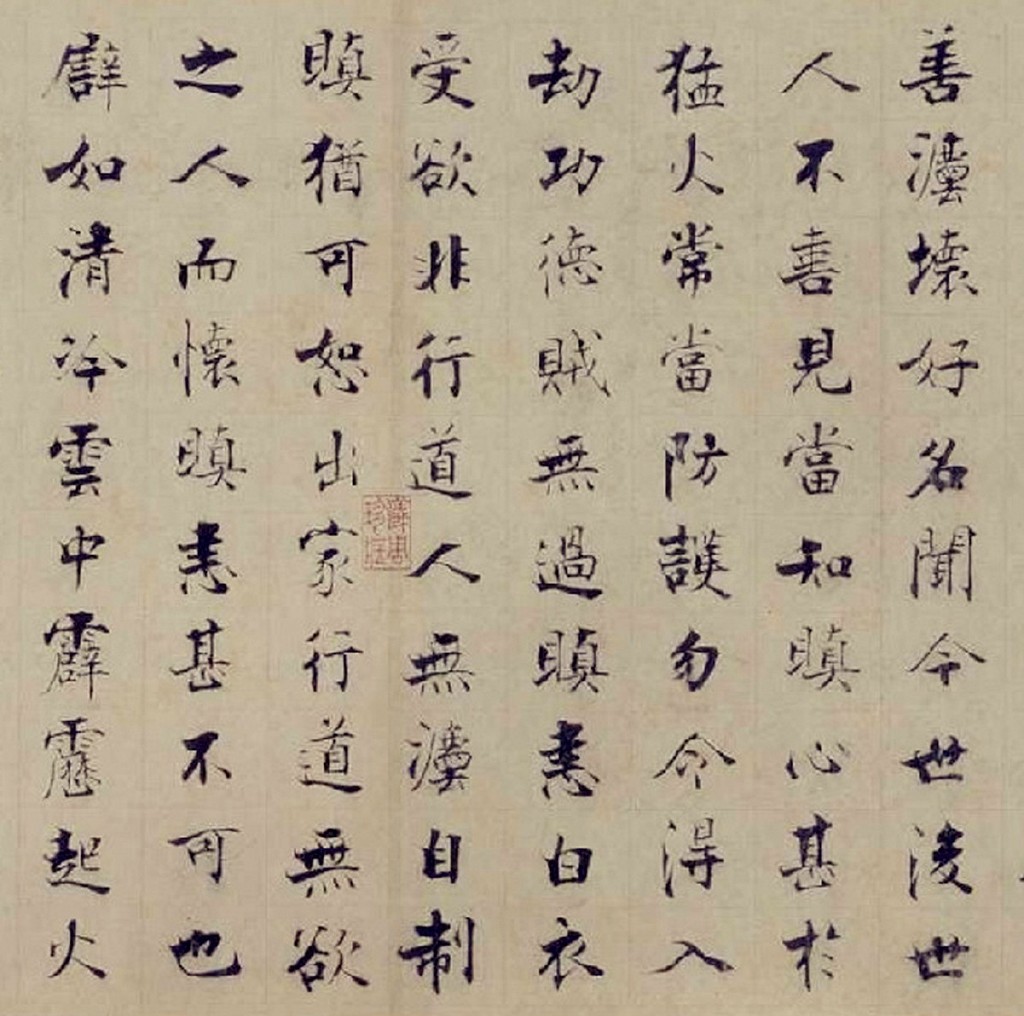 善灋壞好名聞今世後世
人不善見當知瞋心甚於
猛火常當防護勿令得入
劫功德賊無過瞋恚白衣
受欲非行道人無灋自制
瞋猶可恕出家行道無欲
之人而懷瞋恚甚不可也
譬如清冷雲中霹靂起火